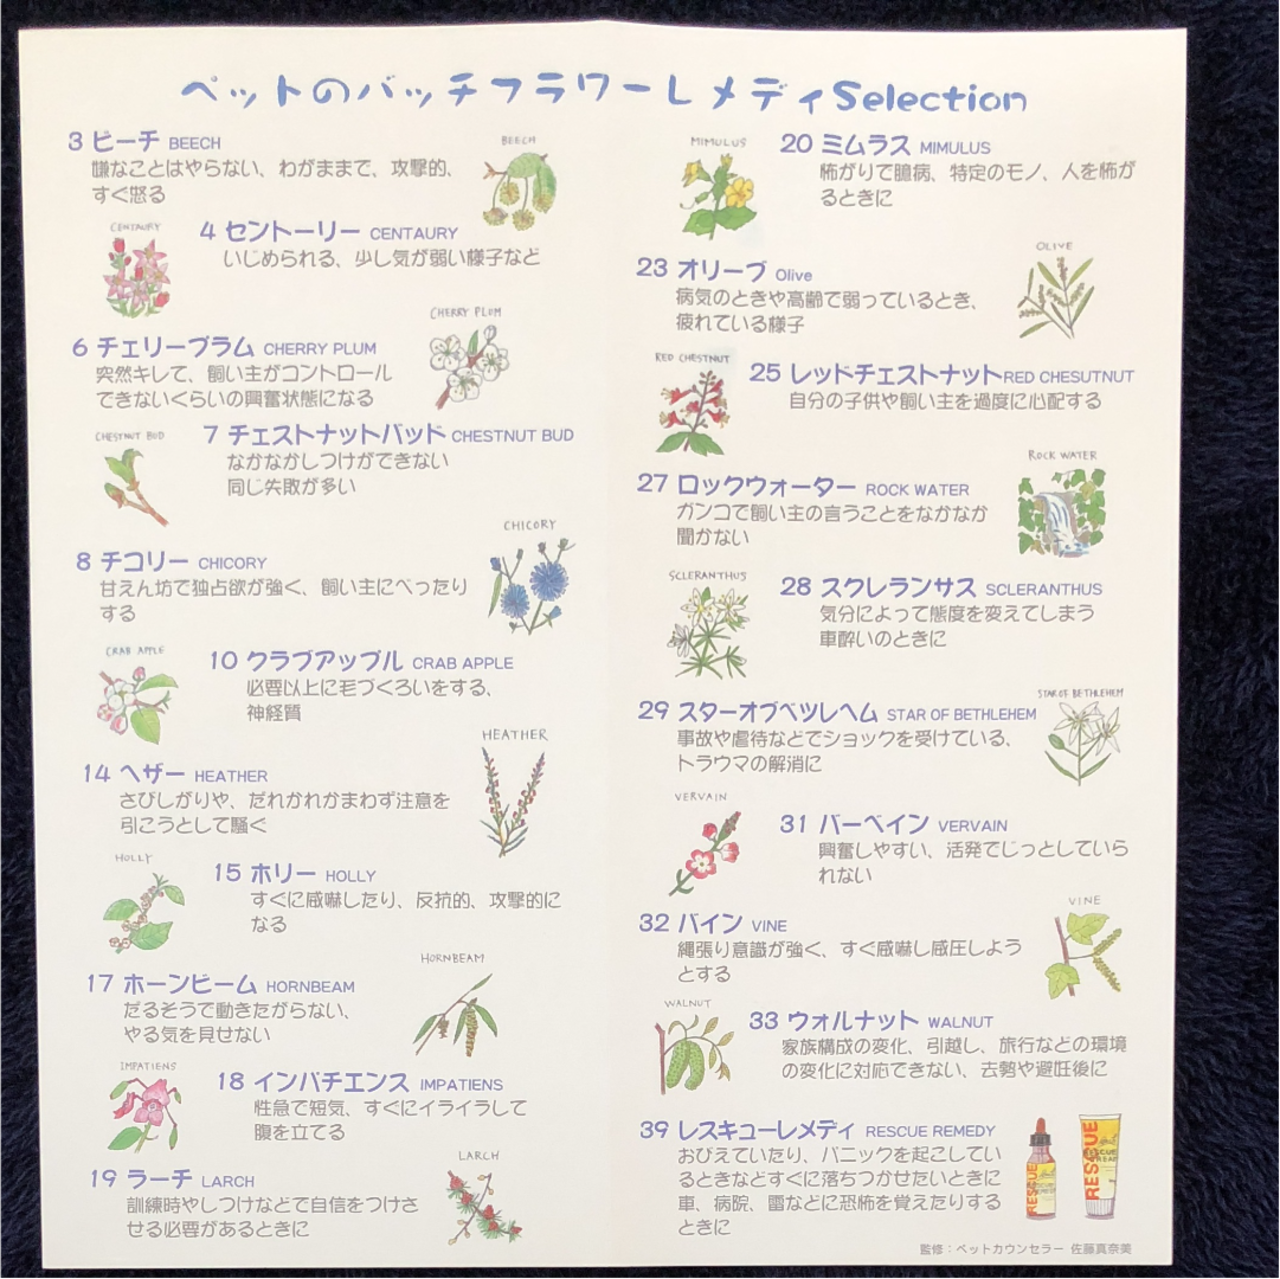 ペットのバッチフラワーレメディSelection
3 ビーチ BEECH
嫌なことはやらない、わがままで、攻撃的、
すぐ怒る
BEECH
CENTAURY
4 セントーリー CENTAURY
いじめられる、少し気が弱い様子など
CHERRY PLUM
6 チェリープラム CHERRY PLUM
突然キレて、飼い主がコントロール
できないくらいの興奮状態になる
CHESTNUT BUD
7 チェストナットバッド CHESTNUT BUD
なかなかしつけができない
同じ失敗が多い
CHICORY
8 チコリー CHICORY
甘えん坊で独占欲が強く、飼い主にべったり
する
CRAB APPLE
10 クラブアップル CRAB APPLE
必要以上に毛づくろいをする、
神経質
HEATHER
14 ヘザー HEATHER
さびしがりや、だれかれかまわず注意を
引こうとして騒ぐ
HOLLY
15 ホリー HOLLY
すぐに威嚇したり、反抗的、攻撃的に
なる
HORNBEAM
17 ホーンビーム HORNBEAM
だるそうで動きたがらない、
やる気を見せない
IMPATIENS
18 インパチエンス IMPATIENS
性急で短気、すぐにイライラして
腹を立てる
LARCH
19 ラーチ LARCH
訓練時やしつけなどで自信をつけさ
せる必要があるときに
MIMULUS
20 ミムラス MIMULUS
怖がりで臆病、特定のモノ、人を怖が
るときに
OLIVE
23 オリーブ Olive
病気のときや高齢で弱っているとき、
疲れている様子
RED CHESTNUT
25 レッドチェストナットRED CHESUTNUT
自分の子供や飼い主を過度に心配する
ROCK WATER
27 ロックウォーター ROCK WATER
ガンコで飼い主の言うことをなかなか
聞かない
SCLERANTHUS
28 スクレランサス SCLERANTHUS
気分によって態度を変えてしまう
車酔いのときに
STAR OF BETHLEHEM
29 スターオブベツレヘム STAR OF BETHLEHEM
事故や虐待などでショックを受けている、
トラウマの解消に
VERVAIN
31 バーベイン VERVAIN
興奮しやすい、活発でじっとしていら
れない
VINE
32 バイン VINE
縄張り意識が強く、すぐ威嚇し威圧しよう
とする
WALNUT
33 ウォルナット WALNUT
家族構成の変化、引越し、旅行などの環境
の変化に対応できない、去勢や避妊後に
39 レスキューレメディ RESCUE REMEDY
おびえていたり、パニックを起こしてい
るときなどすぐに落ちつかせたいときに
車、病院、雷などに恐怖を覚えたりする
ときに
RESCUE
RESCUE
監修：ペットカウンセラー 佐藤真奈美